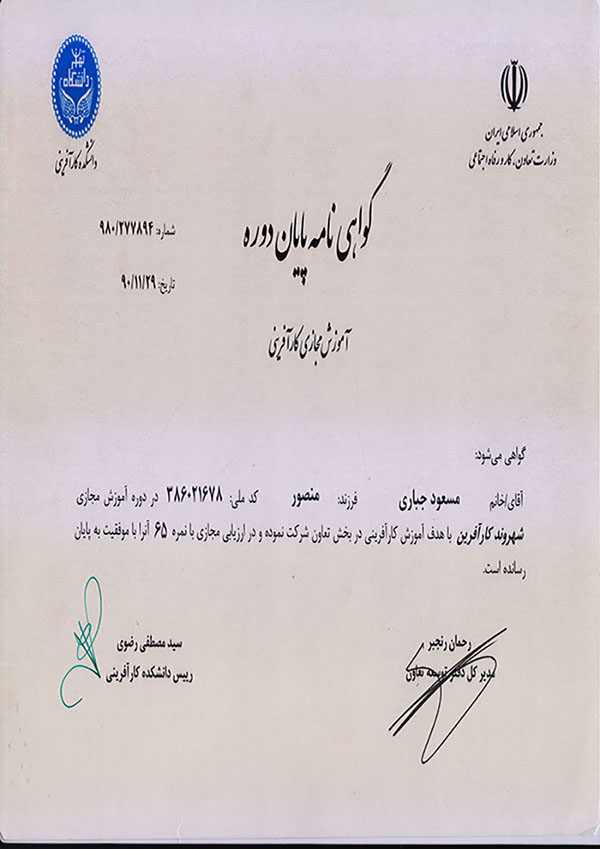 تهران
دانشگاه
دانشکده کارآفرینی
جمهوری اسلامی ایران
وزارت تعاون، کار و رفاه اجتماعی
گواهی نامه پایان دوره
شماره: ۹۸۰/۲۷۷۸۹۴
تاریخ: ۹۰/۱۱/۲۹
آموزش مجازی کارآفرینی
گواهی می‌شود:
آقای/خانم مسعود جباری فرزند: منصور کد ملی: ۳۸۶۰۲۱۶۷۸ در دوره آموزش مجازی
شهروند کارآفرین با هدف آموزش کارآفرینی در بخش تعاون شرکت نموده و در ارزیابی مجازی با نمره ۶۵ آنرا با موفقیت به پایان
رسانده است.
رحمان رنجبر
مدیر کل دفتر توسعه تعاون
سید مصطفی رضوی
رییس دانشکده کارآفرینی